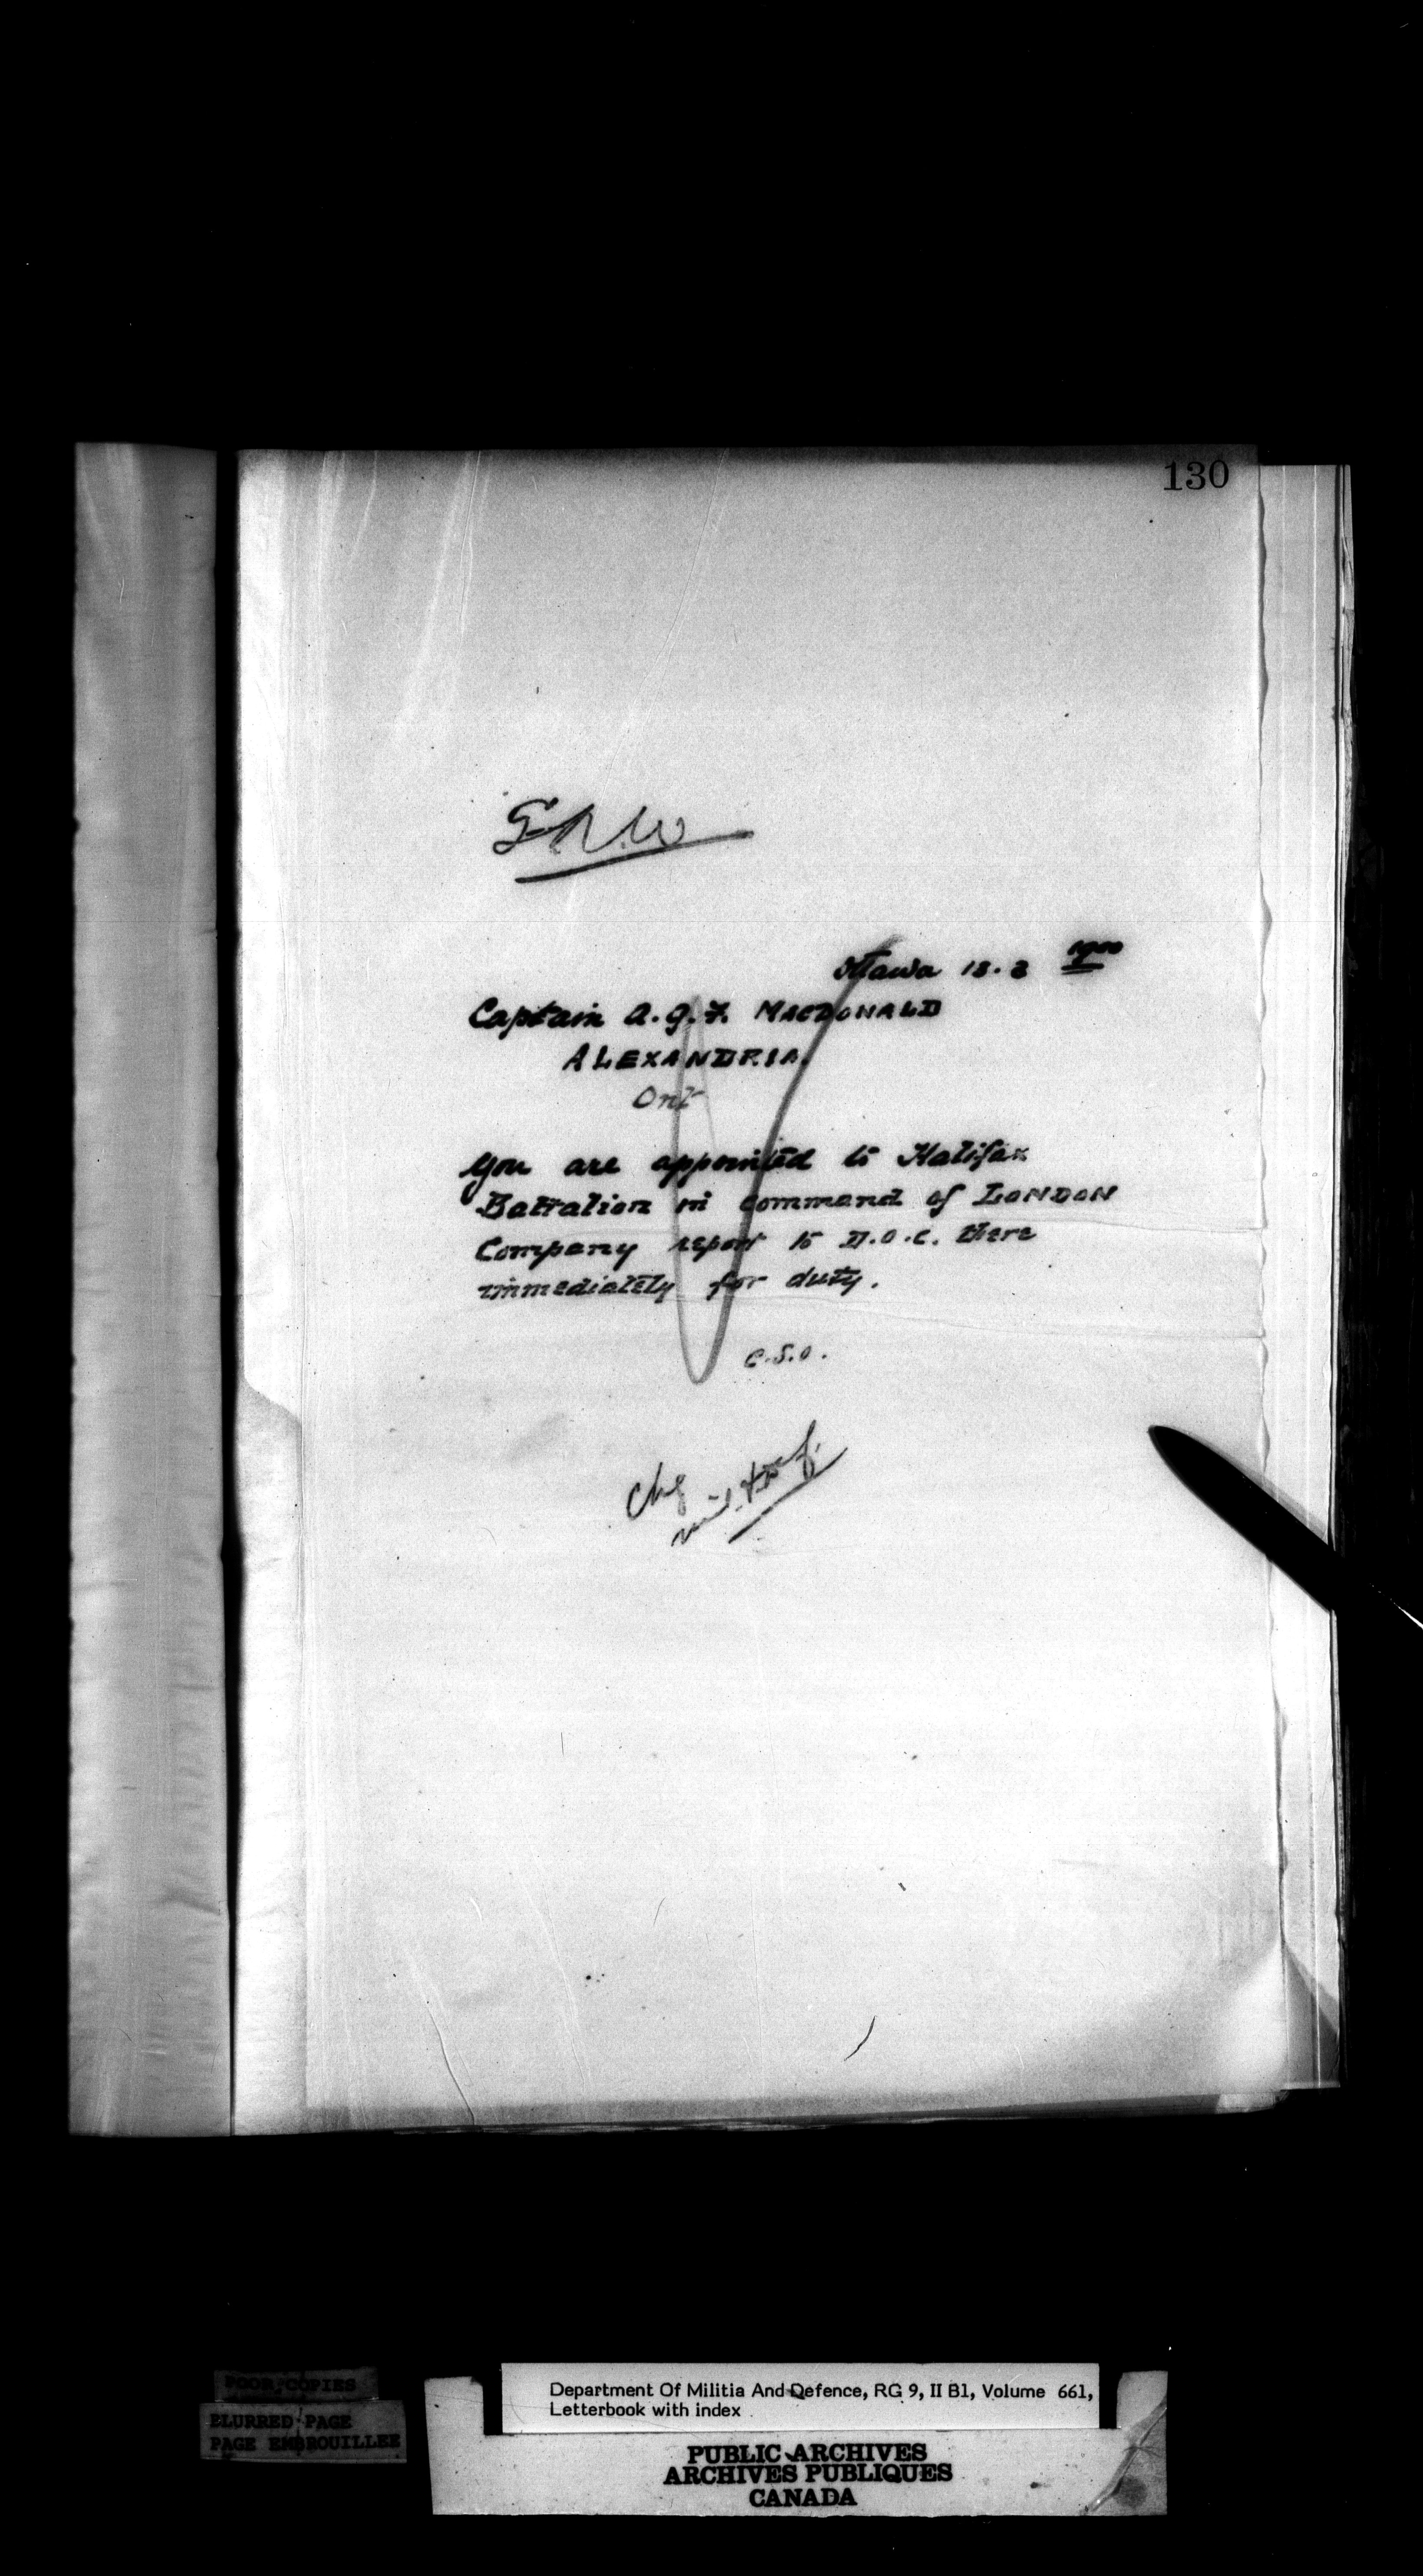 130
G.N.W
Ottawa 13.3 1900
Captain A.G.F. MACDONALD
ALEXANDRIA.
Ont
You are appointed to Halifax
Battalion in command of LONDON
Company report to D.O.C. there
immediately for duty.
C.S.O.
Chg
mil. & def.
POOR COPIES
BLURRED PAGE
PAGE EMBROUILLEE
Department Of Militia And Defence, RG 9, II B1, Volume 661,
Letterbook with index
PUBLIC ARCHIVES
ARCHIVES PUBLIQUES
CANADA